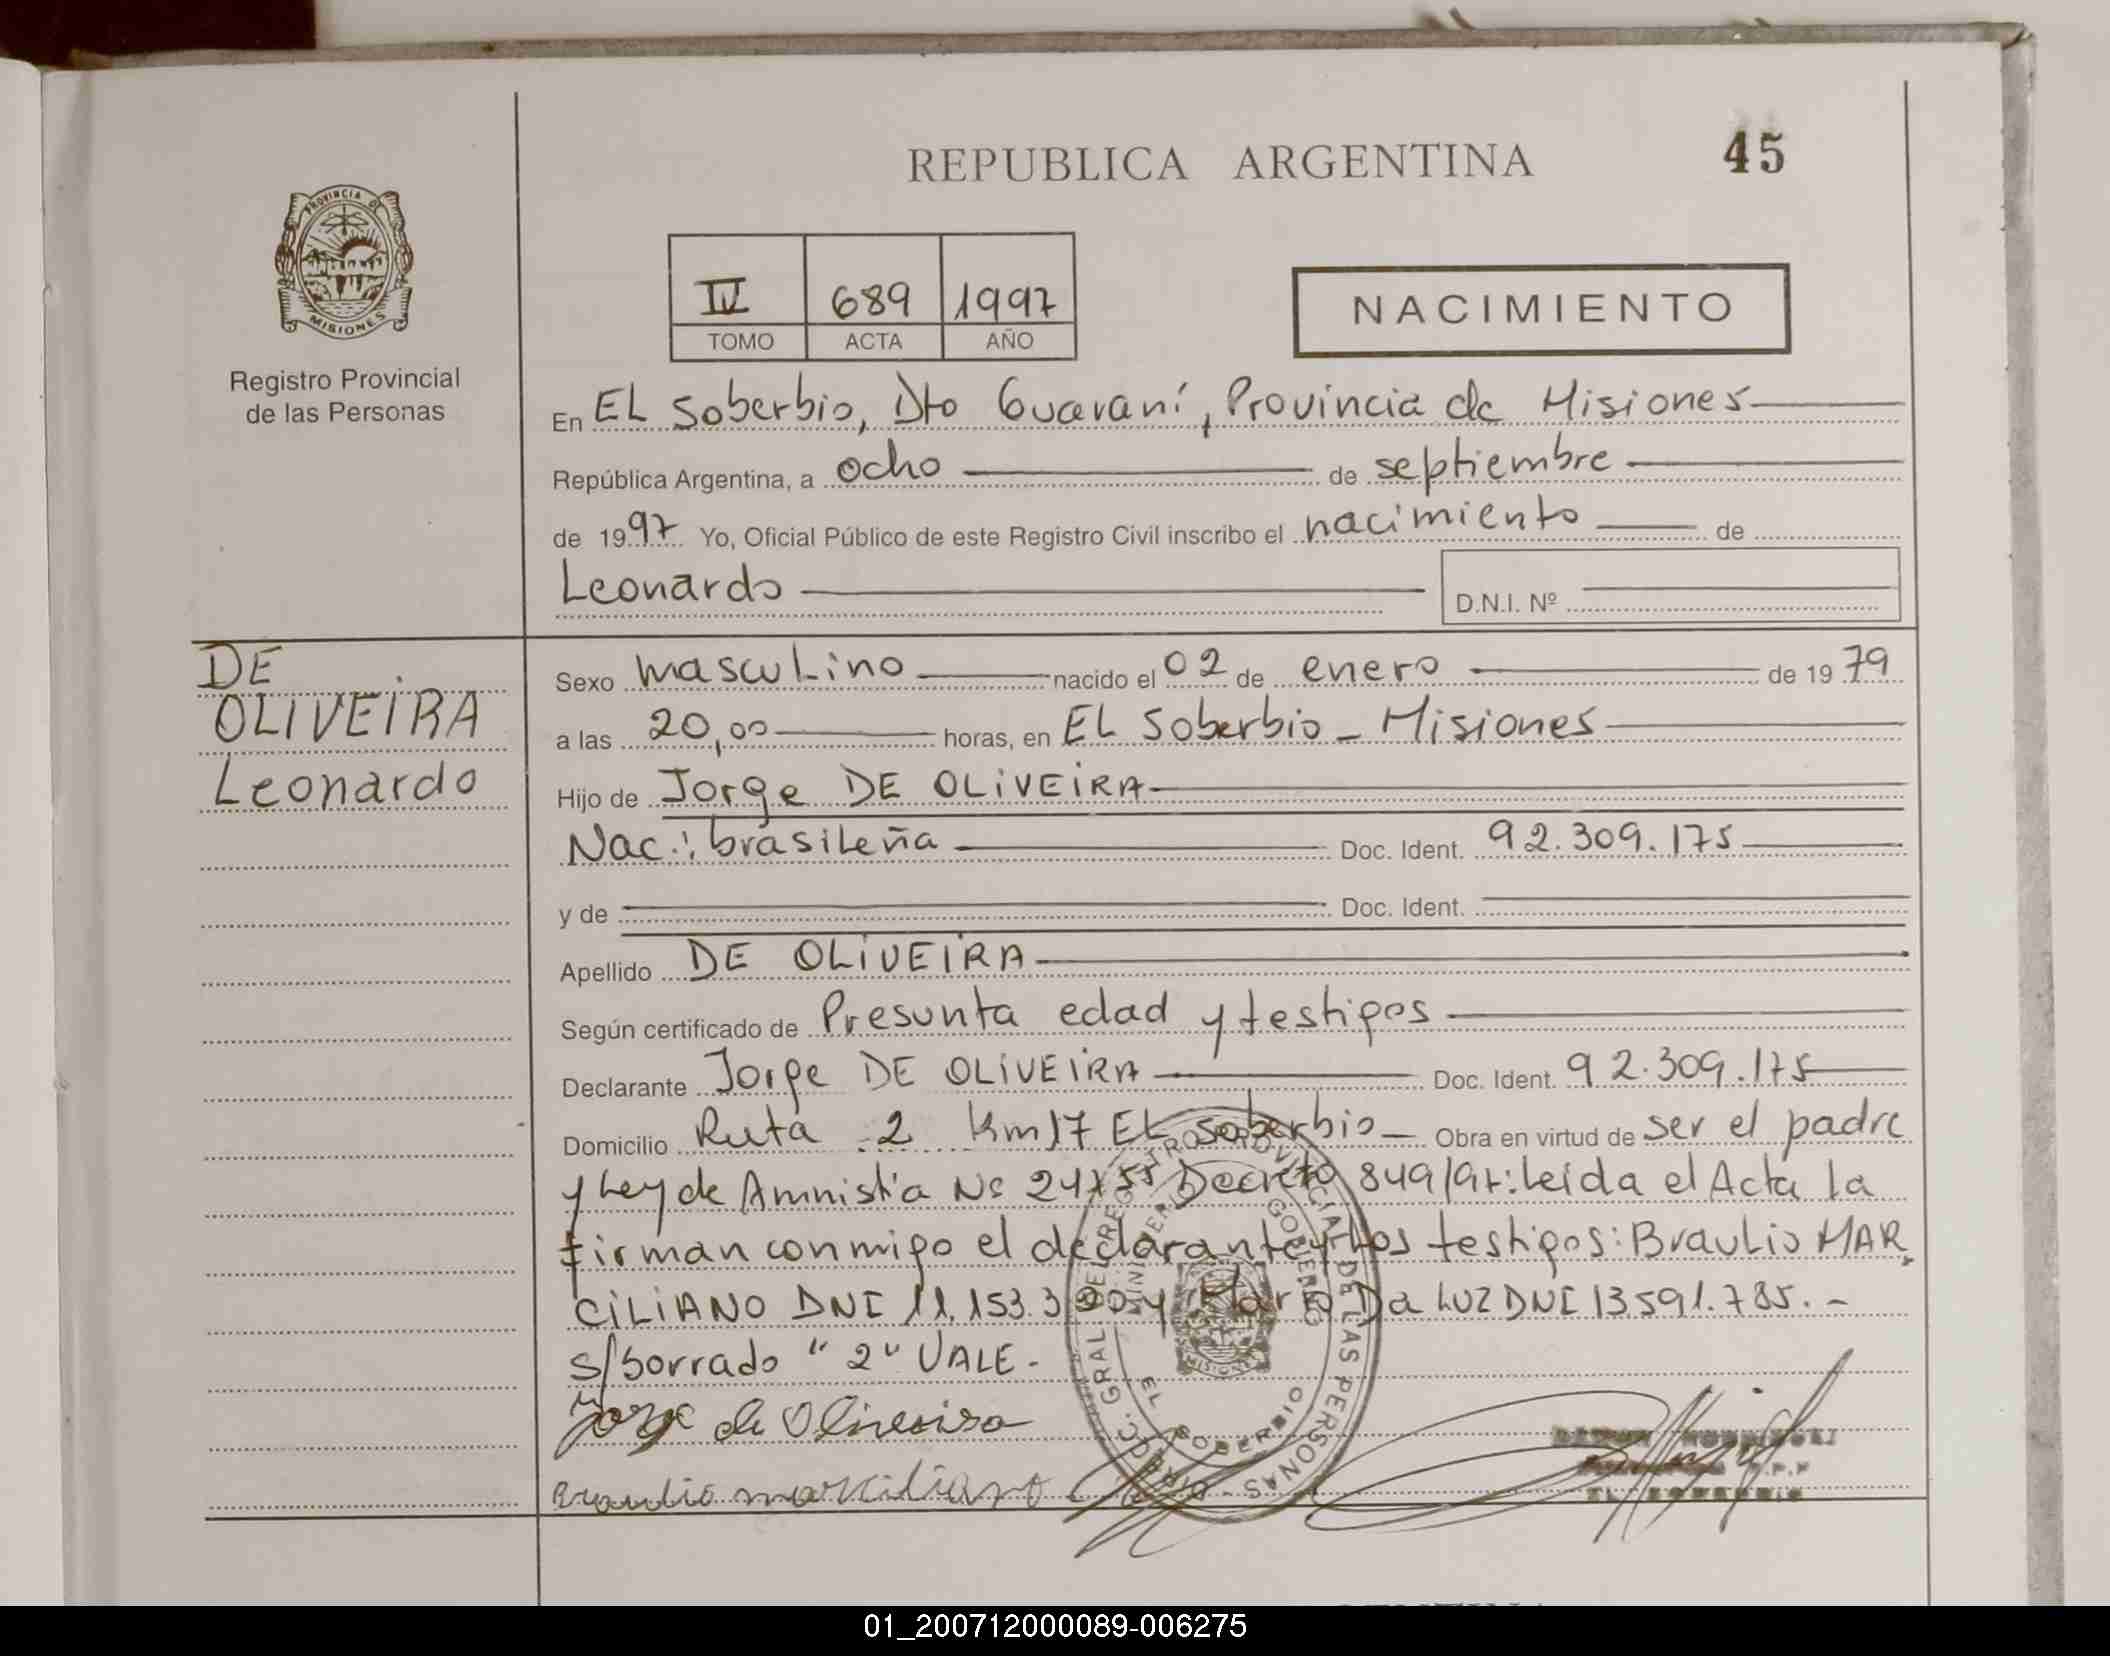 REPUBLICA ARGENTINA
45
PROVINCIA D
MISIONES
Registro Provincial
de las Personas
IV 689 1997
TOMO ACTA AÑO
NACIMIENTO
En EL Soberbio, Dto Guaraní, Provincia de Misiones
República Argentina, a ocho de septiembre
de 1997 Yo, Oficial Público de este Registro Civil inscribo el nacimiento de
Leonardo
D.N.I. Nº
DE
OLIVEIRA
Leonardo
Sexo masculino nacido el 02 de enero de 1979
a las 20,00 horas, en EL Soberbio - Misiones
Hijo de Jorge DE OLIVEIRA
Nac.: brasileña Doc. Ident. 92.309.175
y de Doc. Ident.
Apellido DE OLIVEIRA
Según certificado de Presunta edad y testigos
Declarante Jorge DE OLIVEIRA Doc. Ident. 92.309.175
Domicilio Ruta 2 Km 17 EL Soberbio - Obra en virtud de ser el padre
y Ley de Amnistía Nº 24755 Decreto 849/97: Leída el Acta la
firman conmigo el declarante y los testigos: Braulio MAR
CILIANO DNI 11.153.3 y Mario Da LUZ DNI 13.591.785.-
s/borrado "2" VALE-
Jorge de Oliveira
Braulio marciliano
DIRECC. GRAL DEL REGISTRO PROVINCIAL DE LAS PERSONAS
MINISTERIO GOBIERNO
MISIONES
EL SOBERBIO
EL SOBERBIO
01_200712000089-006275